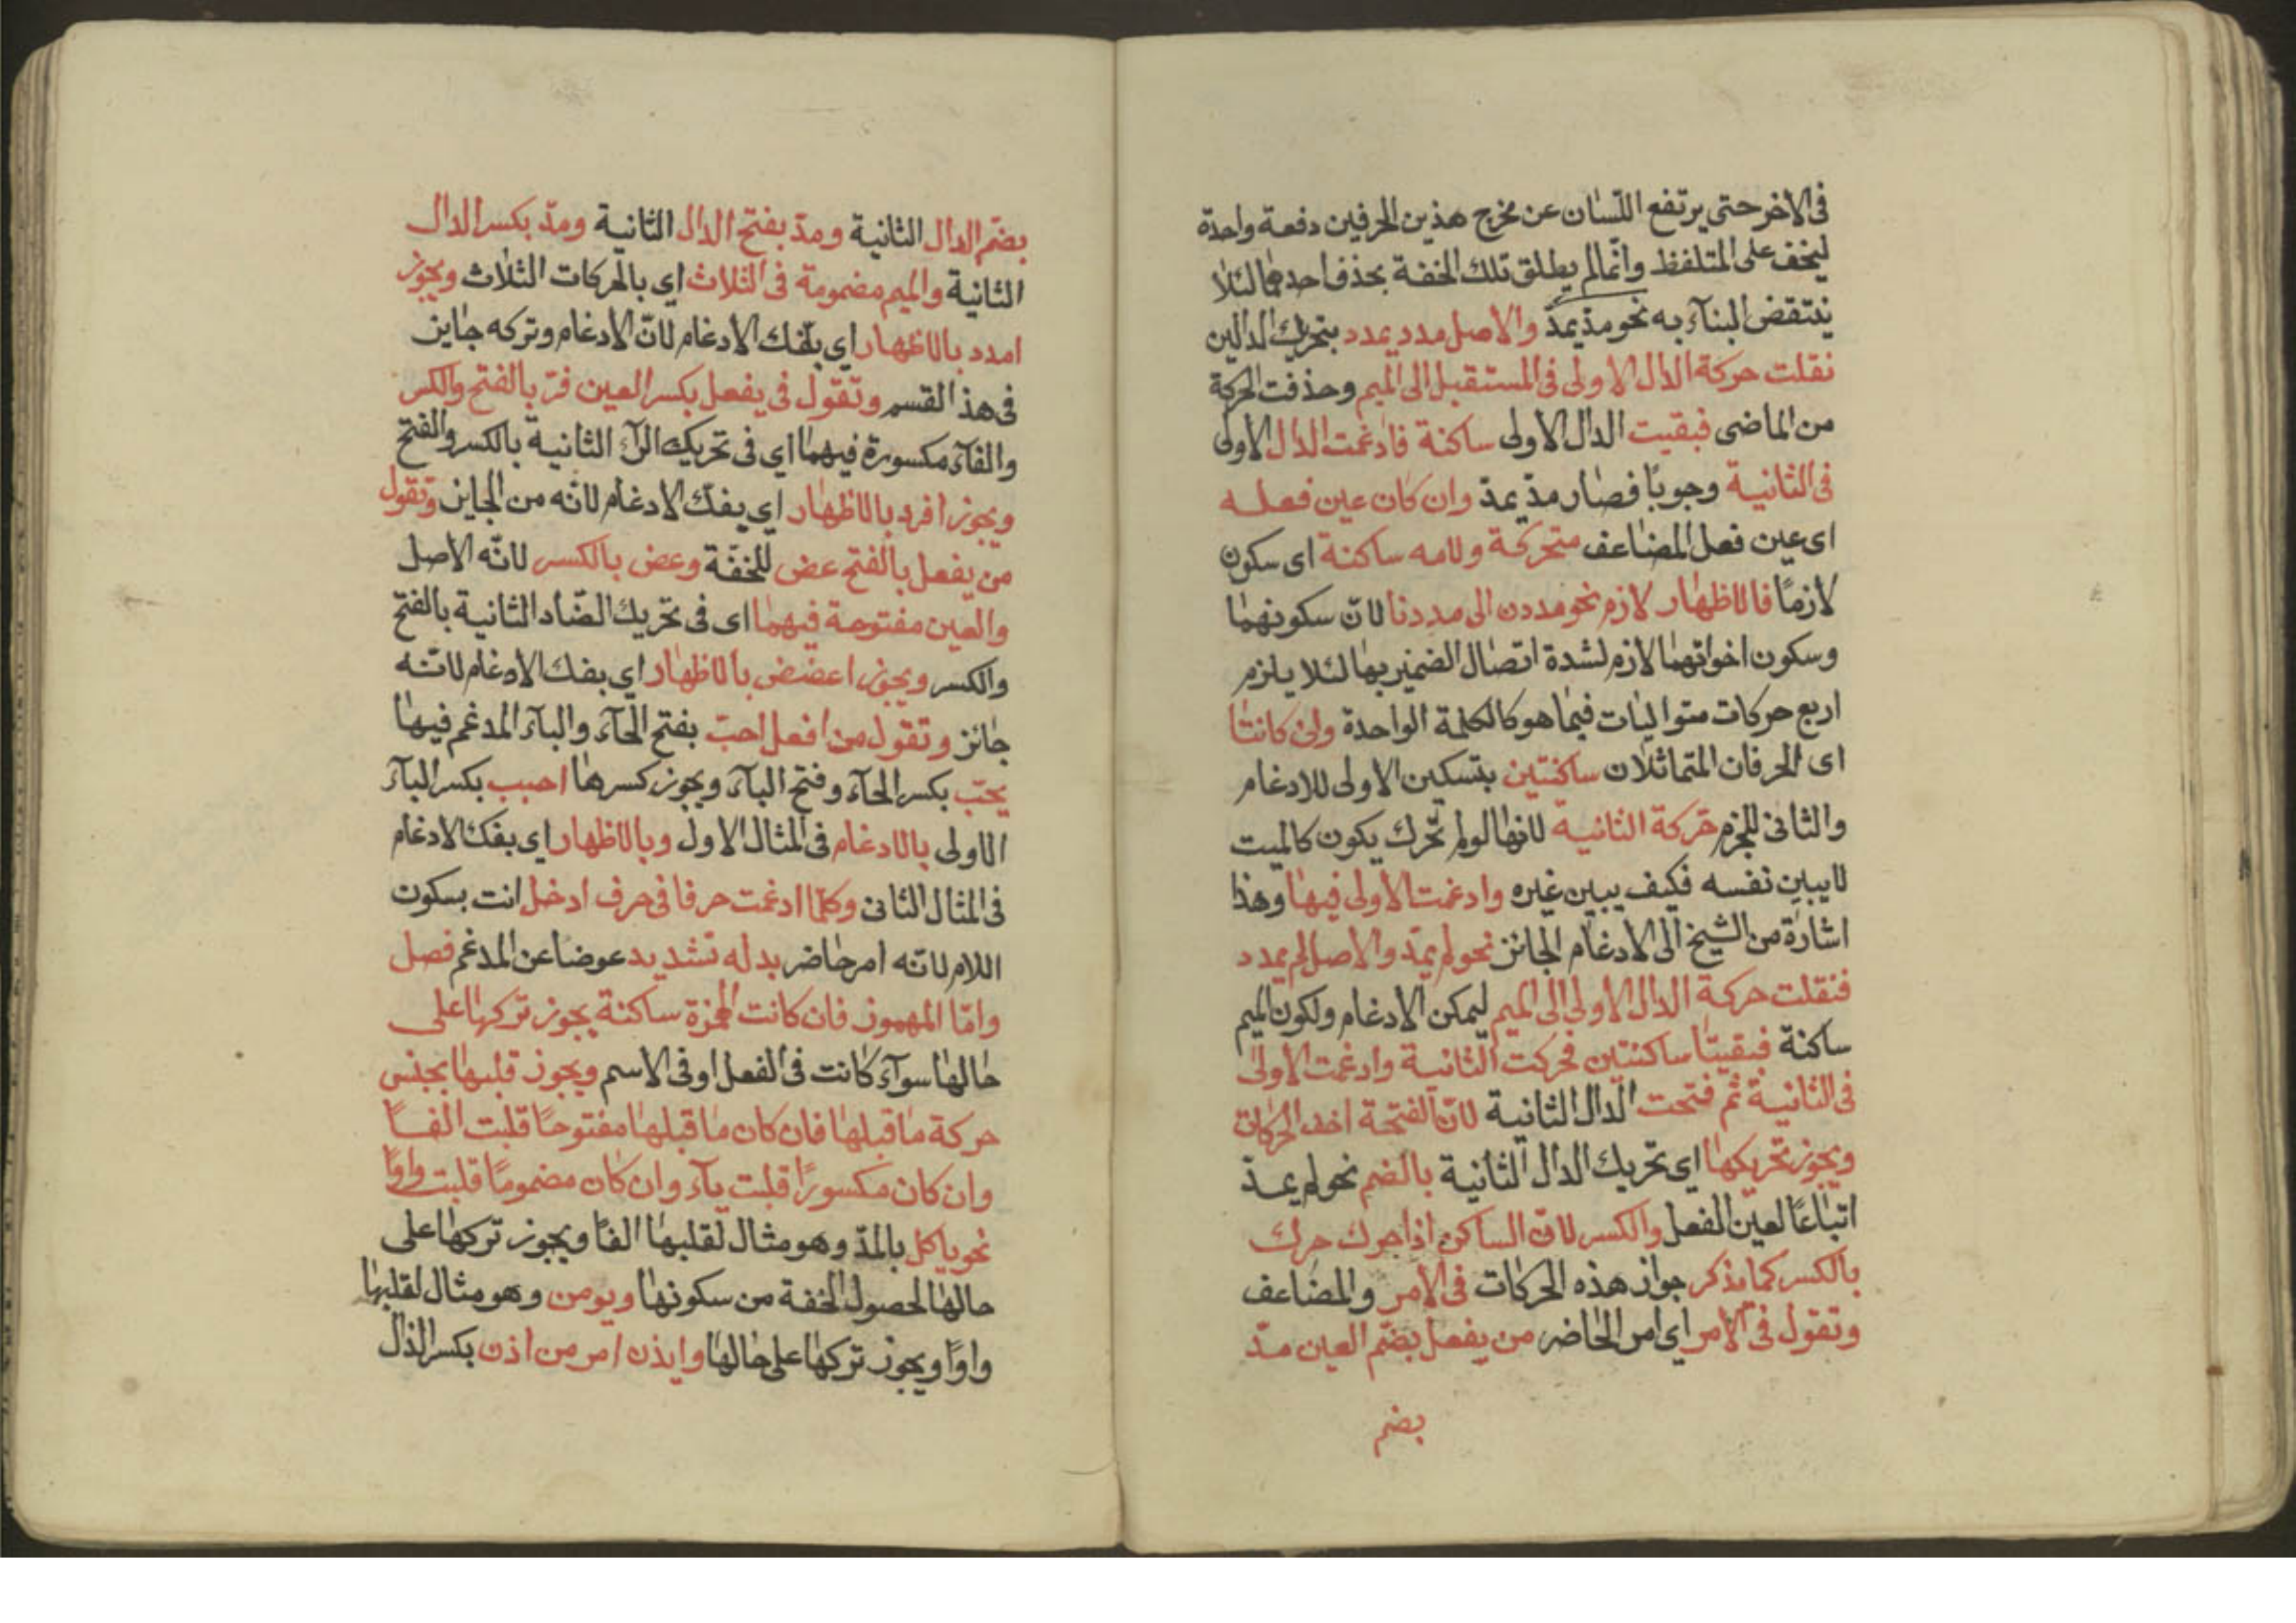 فى الاخر حتى يرتفع اللّسان عن مخرج هذين الحرفين دفعة واحدة
ليخف على المتلفظ وانّما لم يطلق تلك الخفة بحذف احدهما لئلا
ينتقض البنآء به نحو مدّ يمدّ والاصل مدد يمدد بتحريك الدالين
نقلت حركة الدال الاولى فى المستقبل الى الميم وحذفت الحركة
من الماضى فبقيت الدال الاولى ساكنة فادغمت الدال الاولى
فى الثانية وجوبًا فصار مدّ يمدّ وان كان عين فعله
اى عين فعل المضاعف متحركة ولامه ساكنة اى سكون
لازمًا فالاظهار لازم نحو مددن الى مددنا لانّ سكونهما
وسكون اخواتهما لازم لشدة اتصال الضمير بها لئلا يلزم
اربع حركات متواليات فيما هو كالكلمة الواحدة وان كانتا
اى الحرفان المتماثلان ساكنتين بتسكين الاولى للادغام
والثانى للجزم حركة الثانية لانها لو لم تحرك يكون كالميت
لا يبين نفسه فكيف يبين غيره وادغمت الاولى فيها وهذا
اشارة من الشيخ الى الادغام الجائز نحو لم يمدّ والاصل لم يمدد
فنقلت حركة الدال الاولى الى الميم ليمكن الادغام ولكون الميم
ساكنة فبقيتا ساكنتين فحركت الثانية وادغمت الاولى
فى الثانية ثم فتحت الدال الثانية لانّ الفتحة اخف الحركات
ويجوز تحريكها اى تحريك الدال الثانية بالضم نحو لم يمدّ
اتباعًا لعين الفعل والكسر لانّ الساكن اذا حرك حرك
بالكسر كما مذكر جواز هذه الحركات فى الامر والمضاعف
وتقول فى الامر اى امر الحاضر من يفعل بضمّ العين مدّ
بضم
بضمّ الدال الثانية ومدّ بفتح الدال الثانية ومدّ بكسر الدال
الثانية والميم مضمومة فى الثلاث اي بالحركات الثلاث ويجوز
امدد بالاظهار اي بفك الادغام لانّ الادغام وتركه جايز
فى هذ القسم وتقول فى يفعل بكسر العين فرّ بالفتح والكسر
والفآء مكسورة فيهما اى فى تحريك الرآء الثانية بالكسر والفتح
ويجوز افرر بالاظهار اي بفك الادغام لانّه من الجايز وتقول
من يفعل بالفتح عض للخفّة وعض بالكسر لانّه الاصل
والعين مفتوحة فيهما اى فى تحريك الضّاد الثانية بالفتح
والكسر ويجوز اعضض بالاظهار اي بفك الادغام لانّه
جائز وتقول من افعل احبّ بفتح الحآء والبآء المدغم فيها
يحبّ بكسر الحآء وفتح البآء ويجوز كسرها احبب بكسر البآء
الاولى بالادغام فى المثال الاول وبالاظهار اي بفك الادغام
فى المثال الثانى وكلّما ادغمت حرفا فى حرف ادخل انت بسكون
اللام لانّه امر حاضر بدله تشديد عوضا عن المدغم فصل
وامّا المهموز فان كانت الهمزة ساكنة يجوز تركها على
حالها سوآء كانت فى الفعل او فى الاسم ويجوز قلبها بجنس
حركة ما قبلها فان كان ما قبلها مفتوحًا قلبت الفًا
وان كان مكسورًا قلبت يآء وان كان مضمومًا قلبت واوًا
نحو ياكل بالمدّ وهو مثال لقلبها الفًا ويجوز تركها على
حالها لحصول الخفة من سكونها ويومن وهو مثال لقلبها
واوًا ويجوز تركها على حالها وايذن امر من اذن بكسر الذال